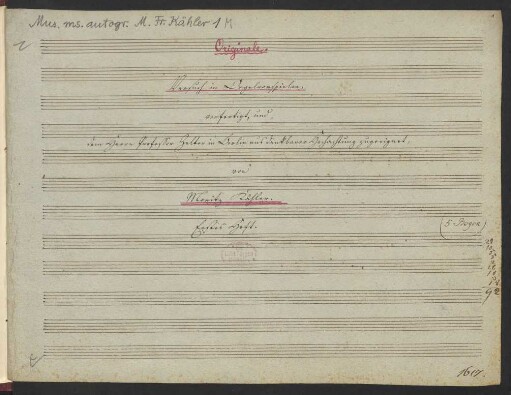 Mus. ms. autogr. M. Fr. Kähler 1 M
Originale.
Versuch in Orgelvorspielen,
verfertigt, und
dem Herrn Professor Zelter in Berlin aus dankbarer Hochachtung zugeeignet,
von
Moritz Kähler.
Erstes Heft.
(5 Bogen)